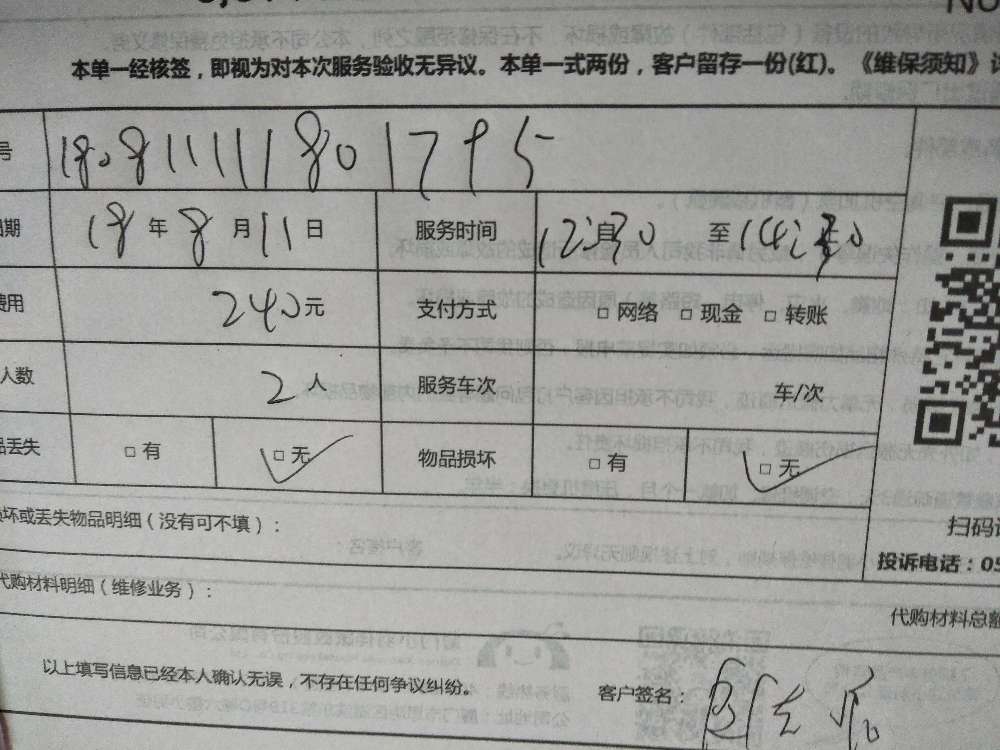 No
本单一经核签，即视为对本次服务验收无异议。本单一式两份，客户留存一份(红)。《维保须知》
号
18年8月11日 服务时间 12:30 至 14:30
费用 240元 支付方式 □ 网络 □ 现金 □ 转账
人数 2人 服务车次 车/次
品丢失 □ 有 □ 无 物品损坏 □ 有 □ 无
损坏或丢失物品明细（没有可不填）：
扫码
投诉电话：05
代购材料明细（维修业务）：
代购材料总额
以上填写信息已经本人确认无误，不存在任何争议纠纷。 客户签名：